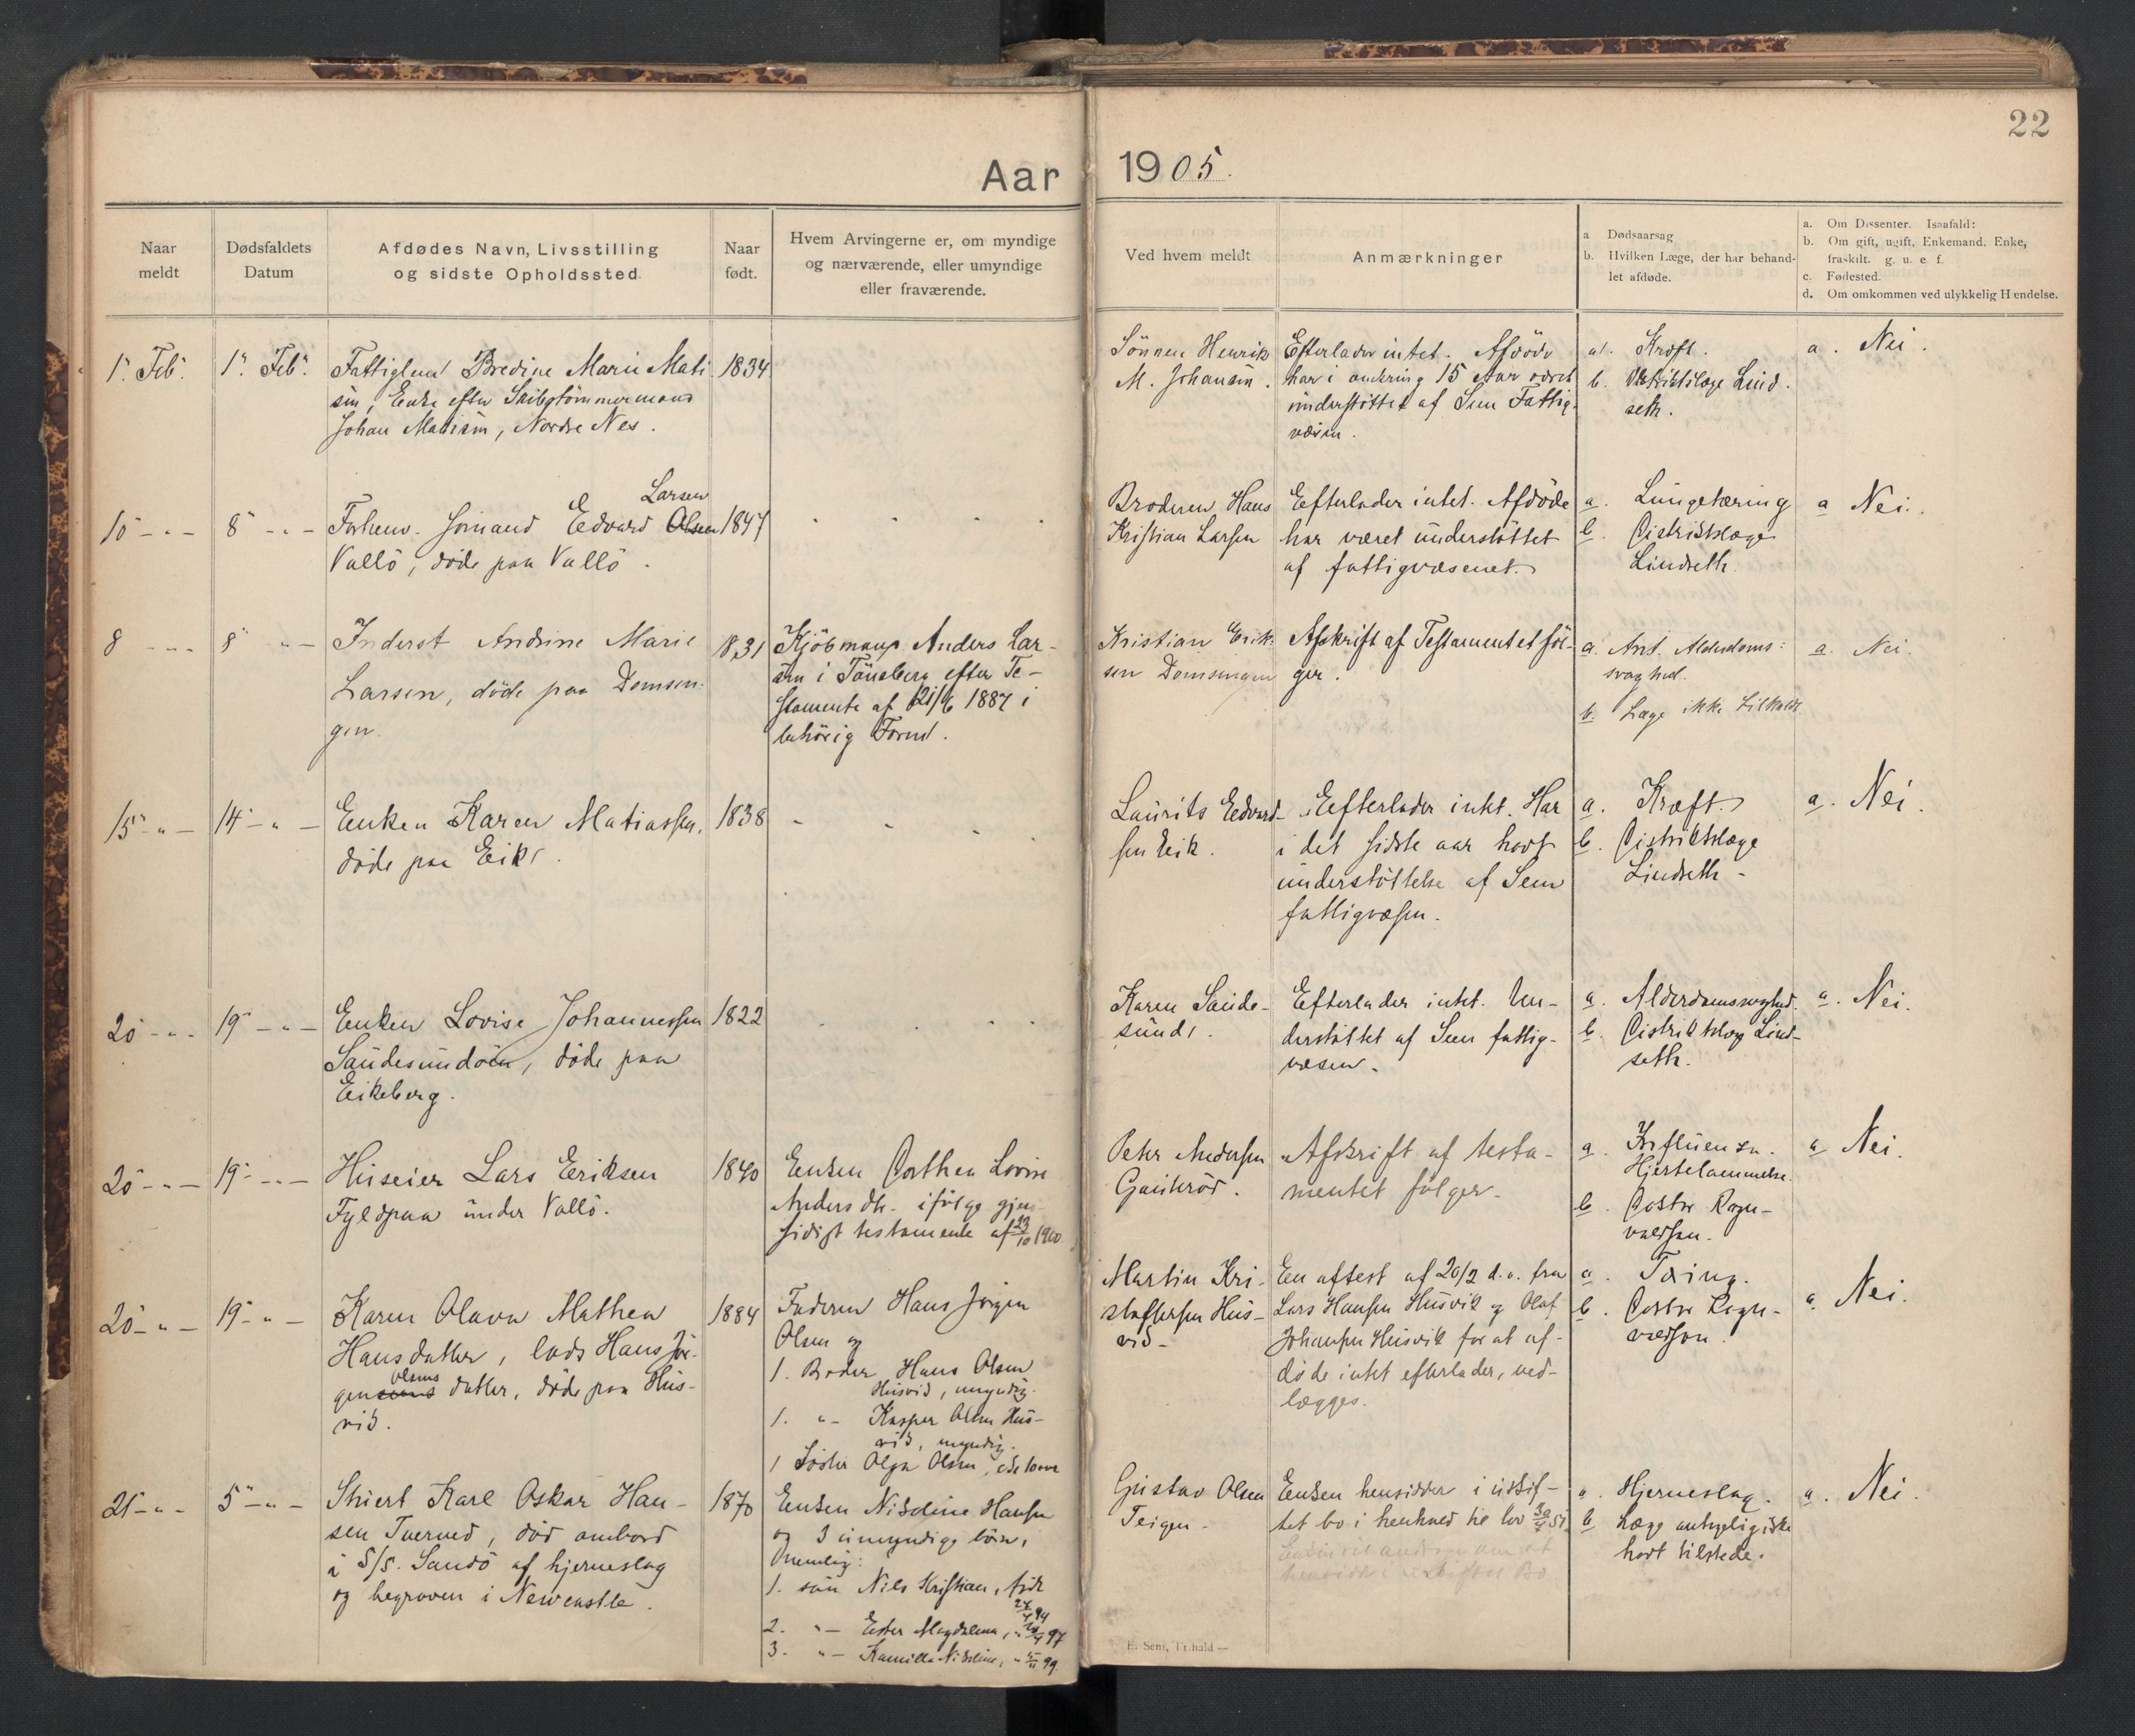 22
Aar 1905.
Naar
meldt
Dødsfaldets
Datum
Afdødes Navn, Livsstilling
og sidste Opholdssted
Naar
født.
Hvem Arvingerne er, om myndige
og nærværende, eller umyndige
eller fraværende.
Ved hvem meldt
Anmærkninger
a Dødsaarsag
b. Hvilken Læge, der har behand-
let afdøde.
a. Om Dissenter. Isaafald:
b. Om gift, ugift, Enkemand, Enke,
fraskilt. g. u. e. f.
c. Fødested.
d. Om omkommen ved ulykkelig Hændelse.
1. Feb.
1. Feb.
Fattiglem Bredine Marie Mati
sen, Enke efter Skibstømmermand
Johan Matisen, Nordre Nes.
1834
Sønnen Henrik
M. Johansen.
Efterlader intet. Afdøde
har i omkring 15 Aar været
understøttet af Sem Fattig-
væsen.
a. Kræft.
b. Distriktslæge Lind
seth.
a. Nei.
10 - " -
8 - " -
Forhenv. Sømand Edvard Olsen
Larsen
Vallö, døde paa Vallö.
1847
Broderen Hans
Kristian Larsen
Eefterlader intet. Afdöde
har været understöttet
af fattigvæsenet.
a. Lungetæring
b. Distriktslæge
Lindseth.
a Nei.
8 - " -
8 " -
Inderst Andrine Marie
Larsen, døde paa Domsen-
gen.
1831
Kjöbmand Anders Lar-
sen i Tönsberg efter Te-
stamente af 21/6 1887 i
behörig Form.
Kristian Erik-
sen Domsengen
Afskrift af Testamentet föl-
ger.
a. Ant. Alderdoms-
svaghed.
b. Læge ikke tilkaldt
a. Nei.
15 - " -
14 - " -
Enken Karen Matiassen,
döde paa Eik.
1838
Laurits Eedvard-
sen Eik.
Eefterlader intet. Har
i det sidste aar havt
understöttelse af Sem
fattigvæsen.
a. Kræft.
b. Distriktslæge
Lindseth -
a. Nei.
20 - " -
19 - " -
Enken Lovise Johannessen
Sandesundöen, döde paa
Eikeberg.
1822
Karen Sande-
sund.
Eefterlader intet. Un-
derstöttet af Sem fattig-
væsen.
a. Alderdomssvaghed.
b. Distriktslæge Lind-
seth.
a. Nei.
20 - " -
19 - " -
Huseier Lars Eriksen
Fyldpaa under Vallö.
1840
Enken Dorthea Lovise
Andersdtr. ifölge gjen-
sidigt testamente af 23/10 1900
Peter Andersen
Gauteröd.
Afskrift af testa-
mentet fölger.
a. Influensa.
Hjertelammelse.
b. Doktor Rogn-
valdsen.
a Nei.
20 - " -
19 - " -
Karen Olava Mathea
Hansdatter, lods Hans Jör-
gen Olsens datter, döde paa Hus-
vik.
1884
Faderen Hans Jörgen
Olsen og
1. Broder Hans Olsen
Husvik, myndig.
1. " - Kasper Olsen Hus-
vik, myndig.
1 Söster Olga Olsen,
Martin Kri-
stoffersen Hus-
vik -
En attest af 20/2 d. a. fra
Lars Hansen Husvik og Olaf
Johansen Husvik for at af-
döde intet efterlader, ved-
lægges.
a. Tæring.
b. Doktor Rogn-
valdsen.
a. Nei.
21 - " -
5 - " -
Stuert Karl Oskar Han-
sen Tverved, död ombord
i S/S. Sandö af hjerneslag
og begraven i Newcastle.
1870
Enken Nikoline Hansen
og 3 umyndige börn,
nemlig:
1. sön Nils Kristian, födt
2. " - Ester Magdalena, " 97
3. " - Kamilla Nikoline, " 99
Gustav Olsen
Teigen -
Enken hensidder i uskif-
tet bo i henhold til lov 30/7 51
a. Hjerneslag.
b Læge antagelig ikke
havt tilstede.
a. Nei.